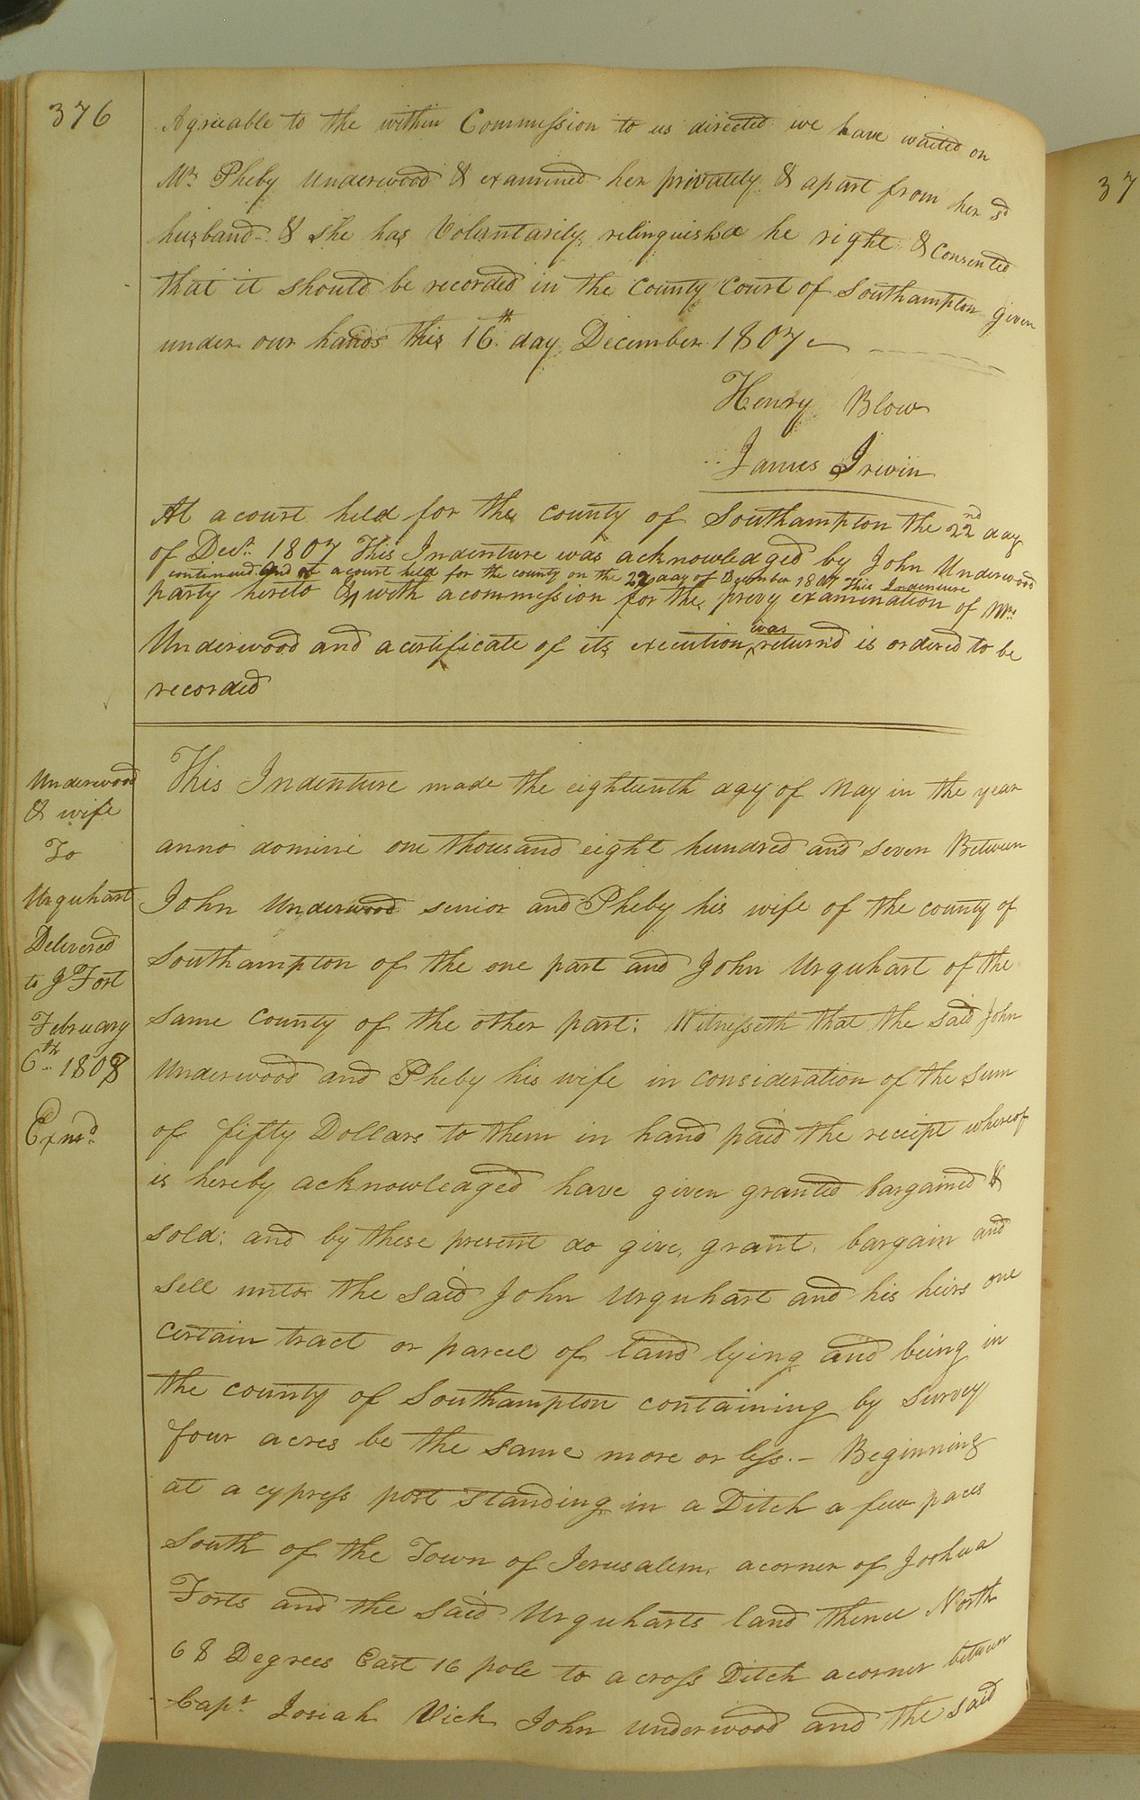 376
Agreeable to the within Commission to us directed we have waited on
Mrs Pheby Underwood & examined her privately & apart from her sd
husband & she has Voluntarily relinquishd he right & consented
that it should be recorded in the County Court of Southampton given
under our hands this 16th day December 1807
Henry Blow
James Irwin
At a court held for the county of Southampton the 22nd day
of Decr. 1807 This Indenture was acknowledged by John Underwood
continued and at a court held for the county on the 22 day of December 1807 This Indenture
party hereto & with a commission for the privy examination of Mrs
was
Underwood and a certificate of its execution returnd is ordered to be
recorded
Underwood
& wife
To
Urquhart
Delivered
to J Fort
February
6th 1808
Exmd
This Indenture made the eighteenth day of May in the year
anno domini one thousand eight hundred and seven Between
John Underwood senior and Pheby his wife of the county of
Southampton of the one part and John Urquhart of the
same county of the other part: Witnesseth that the said John
Underwood and Pheby his wife in consideration of the sum
of fifty Dollars to them in hand paid the receipt whereof
is hereby acknowledged have given granted bargained &
sold; and by these present do give, grant, bargain and
sell unto the said John Urquhart and his heirs one
certain tract or parcel of land lying and being in
the county of Southampton containing by survey
four acres be the same more or less.- Beginning
at a cypress post standing in a Ditch a few paces
South of the Town of Jerusalem, a corner of Joshua
Forts and the said Urquharts land thence North
68 Degrees East 16 pole to a cross Ditch a corner between
Capt Josiah Vick John underwood and the said
37